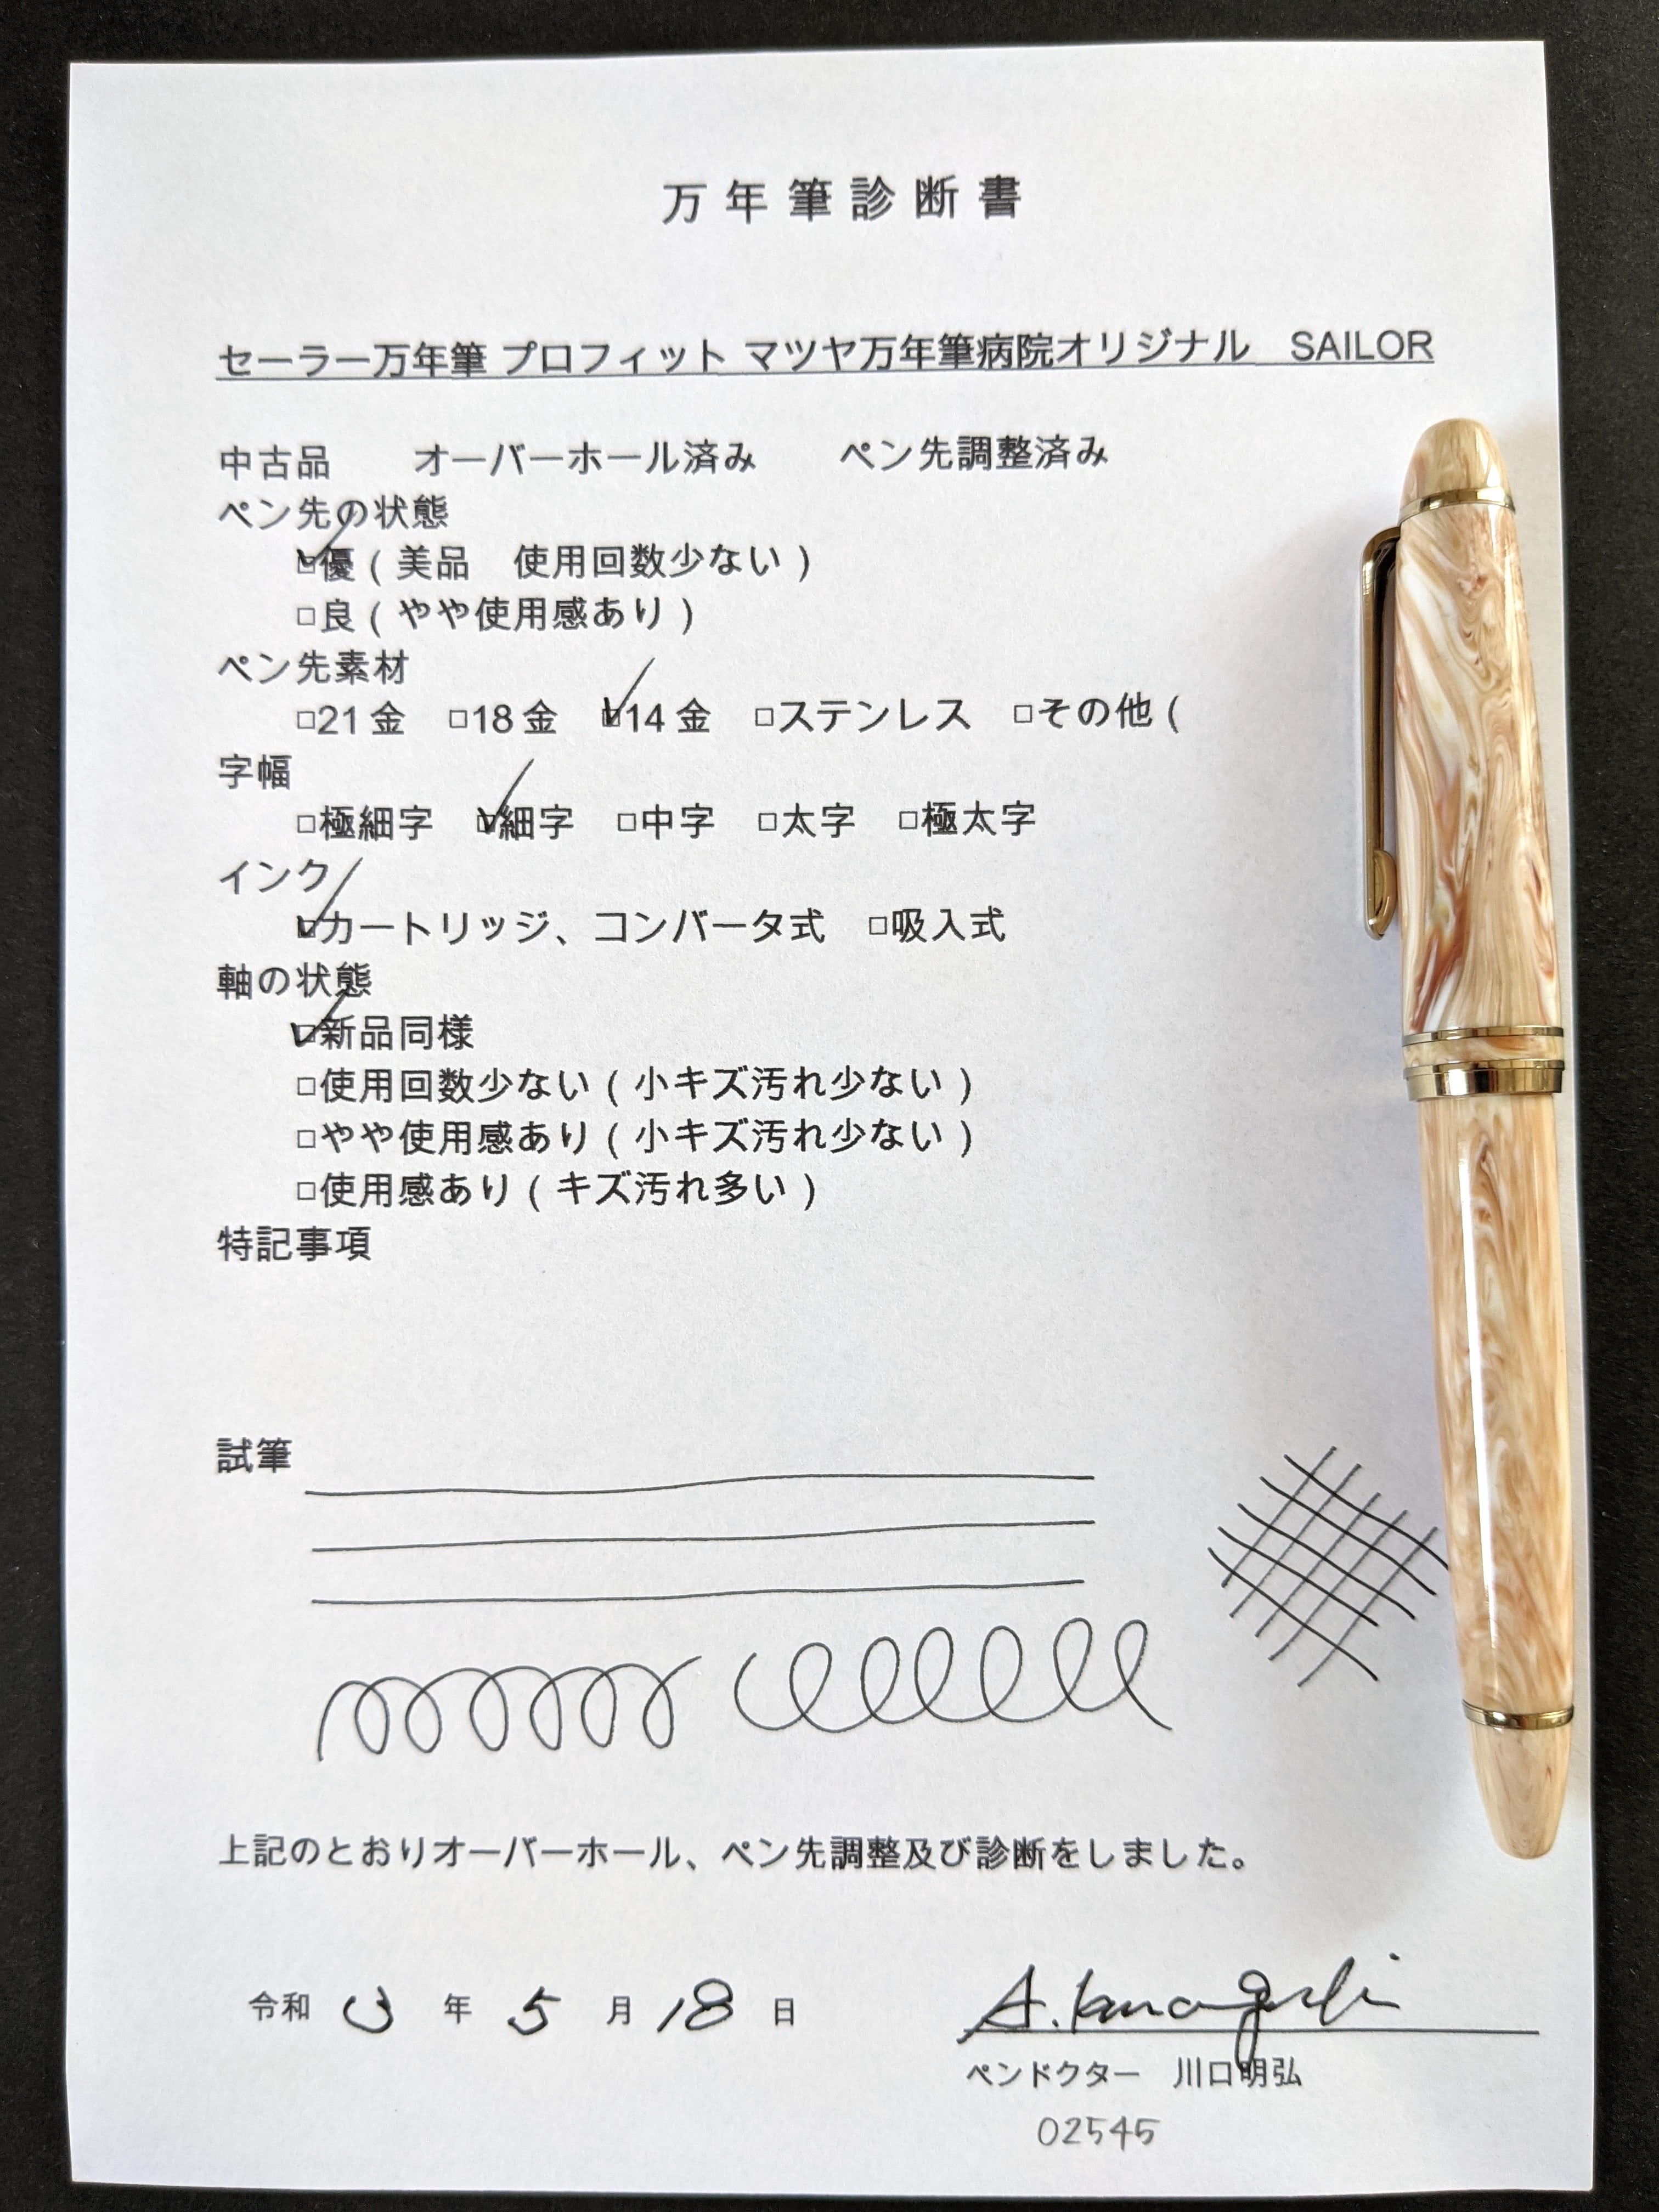 万年筆診断書
セーラー万年筆 プロフィット マツヤ万年筆病院オリジナル　SAILOR
中古品　　オーバーホール済み　　ペン先調整済み
ペン先の状態
☑優（美品　使用回数少ない）
□良（やや使用感あり）
ペン先素材
□21金　□18金　☑14金　□ステンレス　□その他（
字幅
□極細字　☑細字　□中字　□太字　□極太字
インク
☑カートリッジ、コンバータ式　□吸入式
軸の状態
☑新品同様
□使用回数少ない（小キズ汚れ少ない）
□やや使用感あり（小キズ汚れ少ない）
□使用感あり（キズ汚れ多い）
特記事項
試筆
上記のとおりオーバーホール、ペン先調整及び診断をしました。
令和 3 年 5 月 18 日
ペンドクター　川口明弘
02545